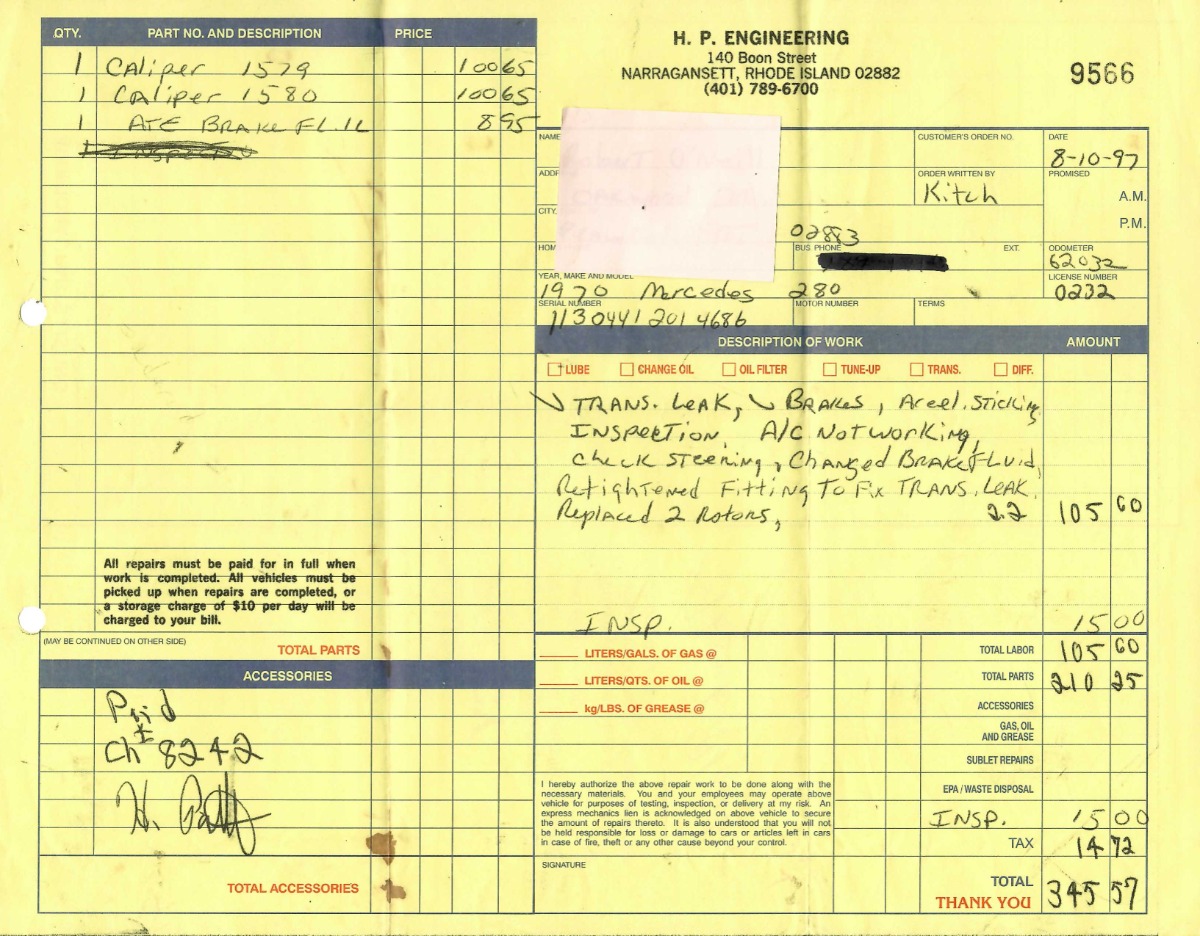 QTY. PART NO. AND DESCRIPTION PRICE
1 Caliper 1579 100 65
1 Caliper 1580 100 65
1 ATE BRAKE FL. 1L 8 95
All repairs must be paid for in full when
work is completed. All vehicles must be
picked up when repairs are completed, or
a storage charge of $10 per day will be
charged to your bill.
(MAY BE CONTINUED ON OTHER SIDE)
TOTAL PARTS
ACCESSORIES
Paid
Ch# 8242
TOTAL ACCESSORIES
H. P. ENGINEERING
140 Boon Street
NARRAGANSETT, RHODE ISLAND 02882
(401) 789-6700
9566
NAME CUSTOMER'S ORDER NO. DATE
8-10-97
ADD ORDER WRITTEN BY PROMISED
Kitch A.M.
CITY, P.M.
02883
HOM BUS PHONE EXT. ODOMETER
62032
YEAR, MAKE AND MODEL LICENSE NUMBER
1970 Mercedes 280 0232
SERIAL NUMBER MOTOR NUMBER TERMS
11304412014686
DESCRIPTION OF WORK AMOUNT
LUBE CHANGE OIL OIL FILTER TUNE-UP TRANS. DIFF.
TRANS. LEAK, BRAKES, Accel. Sticking
INSPECTION, A/C Not working,
Check Steering, Changed BRAKE FLuid,
Retightened Fitting To Fix TRANS. LEAK.
Replaced 2 Rotors, 2.2 105 60
INSP. 15 00
LITERS/GALS. OF GAS @ TOTAL LABOR 105 60
LITERS/QTS. OF OIL @ TOTAL PARTS 210 25
kg/LBS. OF GREASE @ ACCESSORIES
GAS, OIL
AND GREASE
SUBLET REPAIRS
I hereby authorize the above repair work to be done along with the
necessary materials. You and your employees may operate above
vehicle for purposes of testing, inspection, or delivery at my risk. An
express mechanics lien is acknowledged on above vehicle to secure
the amount of repairs thereto. It is also understood that you will not
be held responsible for loss or damage to cars or articles left in cars
in case of fire, theft or any other cause beyond your control.
EPA / WASTE DISPOSAL
INSP. 15 00
TAX 14 72
SIGNATURE
TOTAL 345 57
THANK YOU